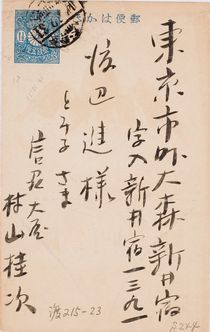 郵便はかき
東京市外大森新井宿
字入新井宿一三九一
渡辺進様
とみ子さま
信州大屋
林山桂次
渡215-23